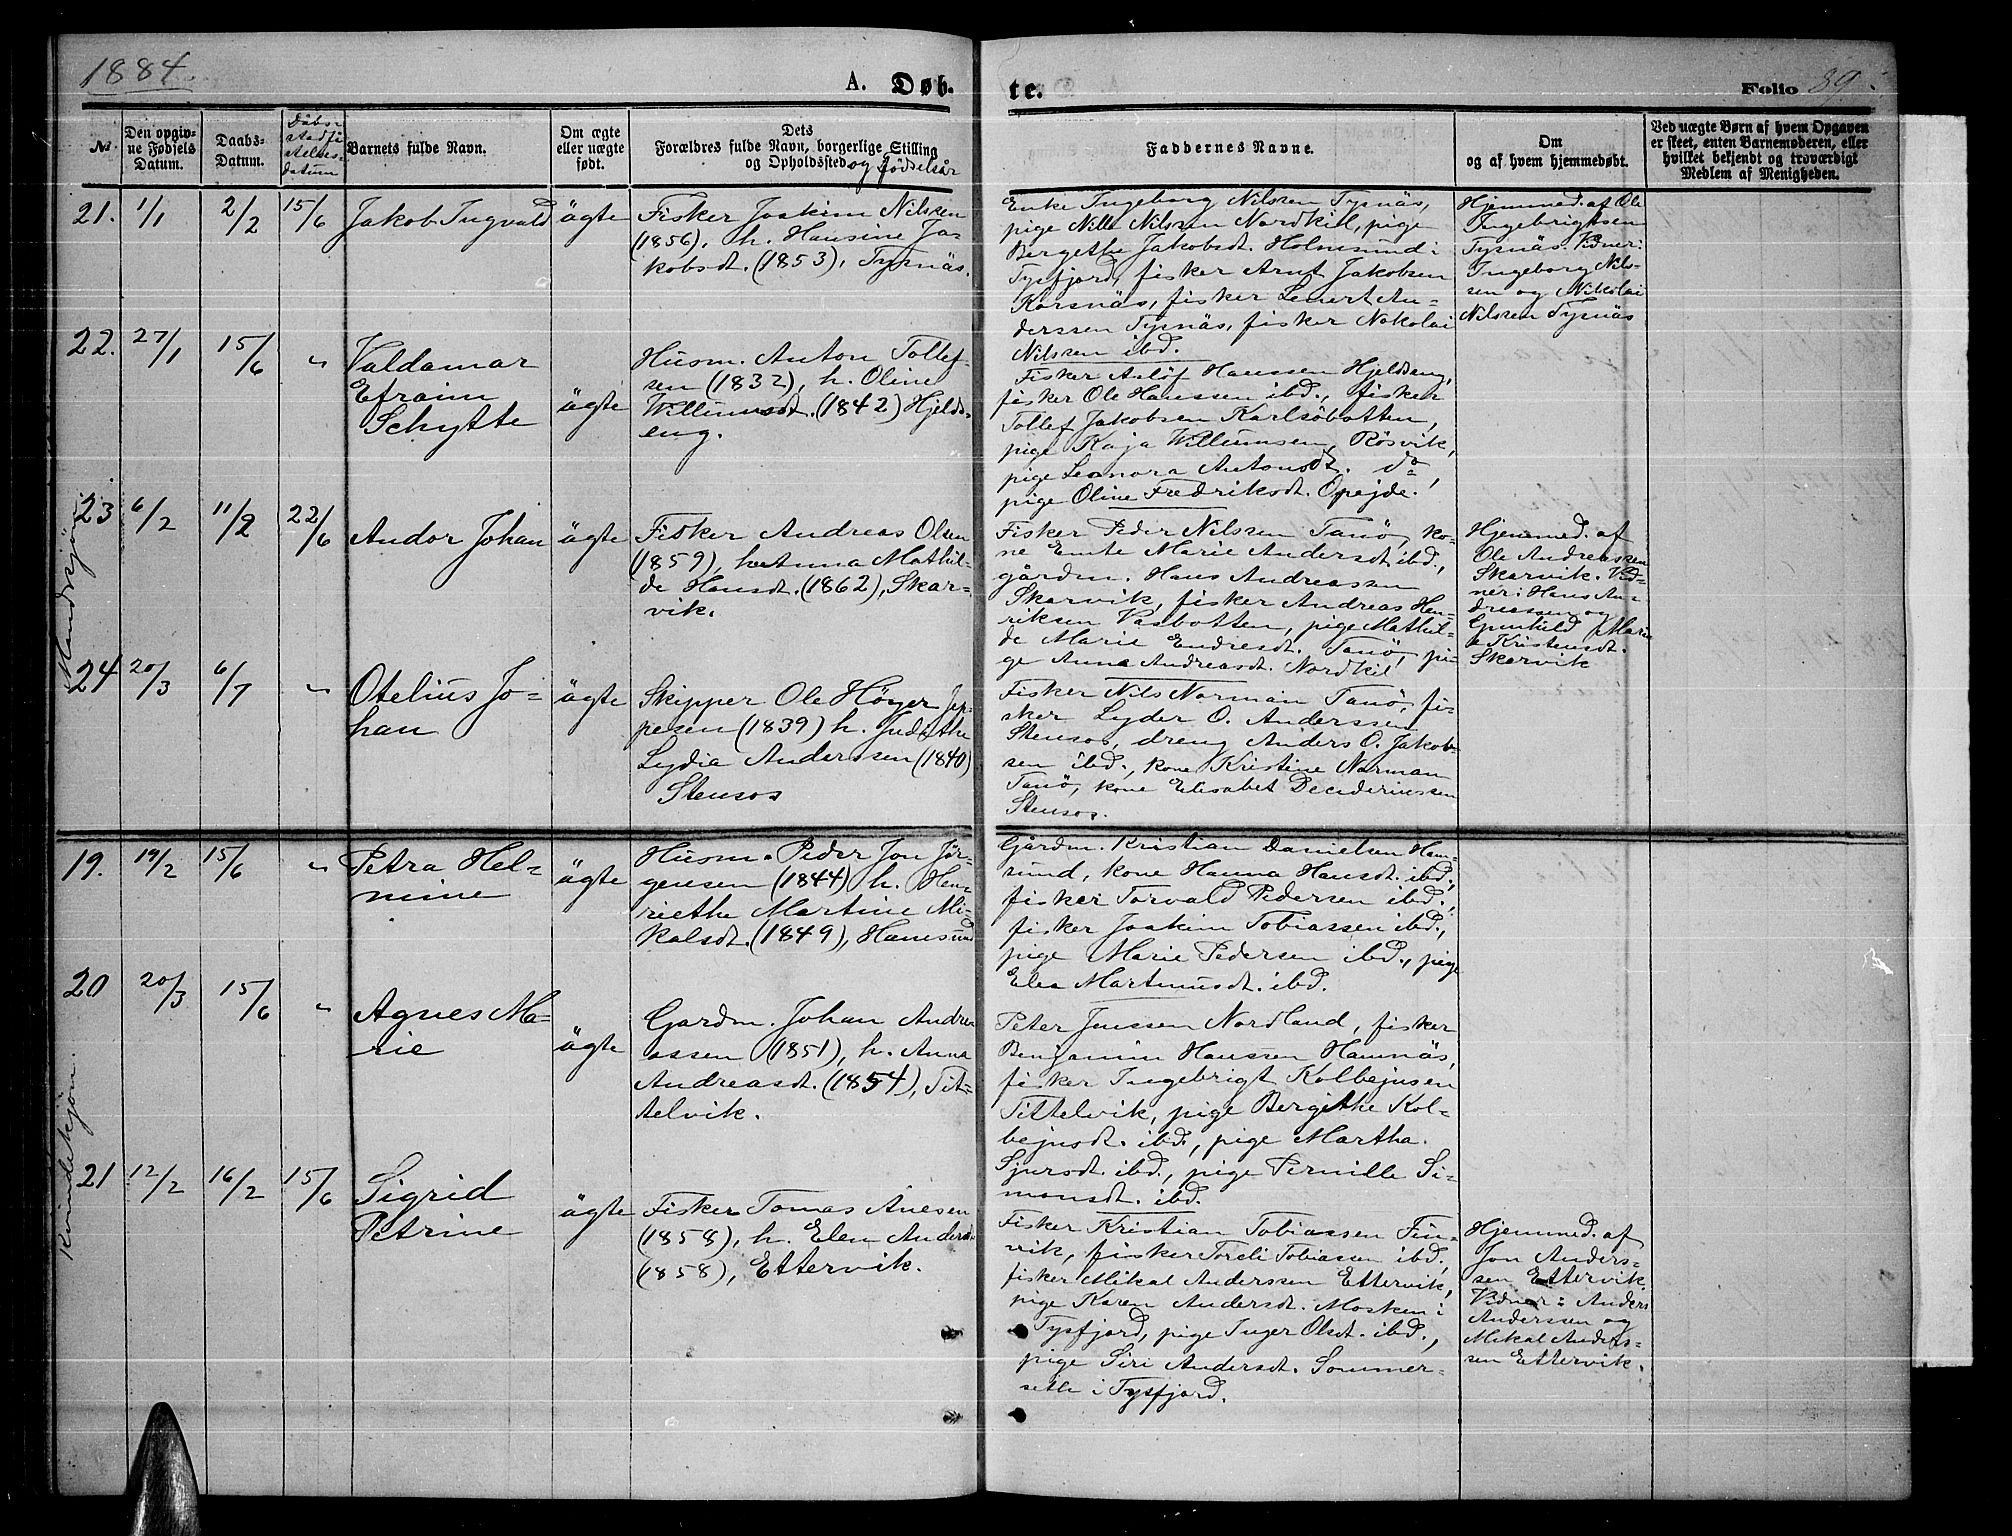 1884.
A. Døb-
te.
Folio 89.
No.
Den opgiv-
ne Fødsels
Datum.
Daabs-
Datum.
Döbs-
stadfä
stelses-
datum
Barnets fulde Navn.
Om ægte
eller uægte
født.
Dets
Forældres fulde Navn, borgerlige Stilling
og Opholdssted og födselsår
Faddernes Navne.
Om
og af hvem hjemmedøbt.
Ved uægte Børn af hvem Opgaven
er skeet, enten Barnemoderen, eller
hvilket bekjendt og troværdigt
Medlem af Menigheden.
Mandkjön
21. 1/1 2/2 15/6 Jakob Ingvald ägte
Fisker Joakim Nilssen
(1856), h. Hansine Ja-
kobsdt. (1853), Tysnäs.
Enke Ingeborg Nilssen Tysnäs,
pige Nille Nilssen Nordkil, pige
Bergethe Jakobsdt. Holmsund i
Tysfjord, fisker Arnt Jakobsen
Korsnäs, fisker Lenert An-
derssen Tysnäs, fisker Nokolai
Nilssen ibd.
Hjemmed. af Ole
Ingebrigtsen
Tysnäs. Vidner:
Ingeborg Nils-
sen og Nikolai
Nilssen Tysnäs
22. 27/1 15/6 "
Valdamar
Efraim
Schytte
ägte
Husm. Anton Tollef-
sen (1832), h. Oline
Willumsdt. (1842) Hjelds-
eng.
Fisker Aslöf Hanssen Hjeldseng,
fisker Ole Hanssen ibd., fisker
Tollef Jakobsen Karlsöbotten,
pige Kaja Willumsen, Rösvik,
pige Leonora Antonsdt. do,
pige Oline Fredriksdt. Opejde.
23 6/2 11/2 22/6 Andor Johan ägte
Fisker Andreas Olsen
(1859), h. Anna Mathil-
de Hansdt. (1862), Skar-
vik.
Fisker Peder Nilssen Tanö, ko-
ne Emte Marie Andersdt. ibd.,
gårdm. Hans Andreassen
Skarvik, fisker Andreas Hen-
riksen Vasbotten, pige Mathil-
de Marie Endresdt. Tanö, pi-
ge Anna Andreasdt. Nordkil
Hjemmed. af
Ole Andreassen
Skarvik. Vid-
ner: Hans An-
dreassen og
Gunhild Marie
Kristensdt.
Skarvik
24 20/3 6/7 "
Otelius Jo-
han
ägte
Skipper Ole Höyer Jep-
pesen (1839) h. Judithe
Lydia Anderssen (1840)
Stensos
Fisker Nils Norman Tanö, fi-
sker Lyder O. Anderssen
Stensos, dreng Anders O. Jakob-
sen ibd., kone Kristine Norman
Tanö, kone Elisabet Deciderinssen
Stensos.
Kvindekjön.
19. 19/2 15/6 "
Petra Hel-
mine
ägte
Husm. Peder Jon Jör-
gensen (1844) h. Hen-
riethe Martine Mi-
kalsdt. (1849), Hamsund
Gårdm. Kristian Danielsen Ham-
sund, kone Hanna Hansdt. ibd.,
fisker Torvald Pedersen ibd.,
fisker Joakim Tobiassen ibd.,
pige Marie Pedersen ibd., pige
Elea Martinusdt. ibd.
20 20/3 15/6 "
Agnes Ma-
rie
ägte
Gardm. Johan Andre-
assen (1851), h. Anna
Andreasdt. (1854), Tit-
telvik.
Peter Jenssen Nordland, fisker
Benjamin Hanssen Hamnäs,
fisker Ingebrigt Kolbejnsen
Tittelvik, pige Bergithe Kol-
bejnsdt. ibd., pige Martha
Sjursdt. ibd., pige Pernille Si-
monsdt. ibd.
21 12/2 16/2 15/6
Sigrid
Petrine
ägte
Fisker Tomas Anesen
(1858), h. Elen Andersdt.
(1858), Ettervik.
Fisker Kristian Tobiassen Fin-
vik, fisker Toreli Tobiassen ibd.,
fisker Mikal Anderssen Ettervik,
pige Karen Andersdt. Mosken i
Tysfjord, pige Inger Olsdt. ibd.,
pige Siri Andersdt. Sommer-
sette i Tysfjord.
Hjemmed. af
Jon Anders-
sen Ettervik.
Vidner: Anders
Anderssen og
Mikal Anders-
sen Ettervik.